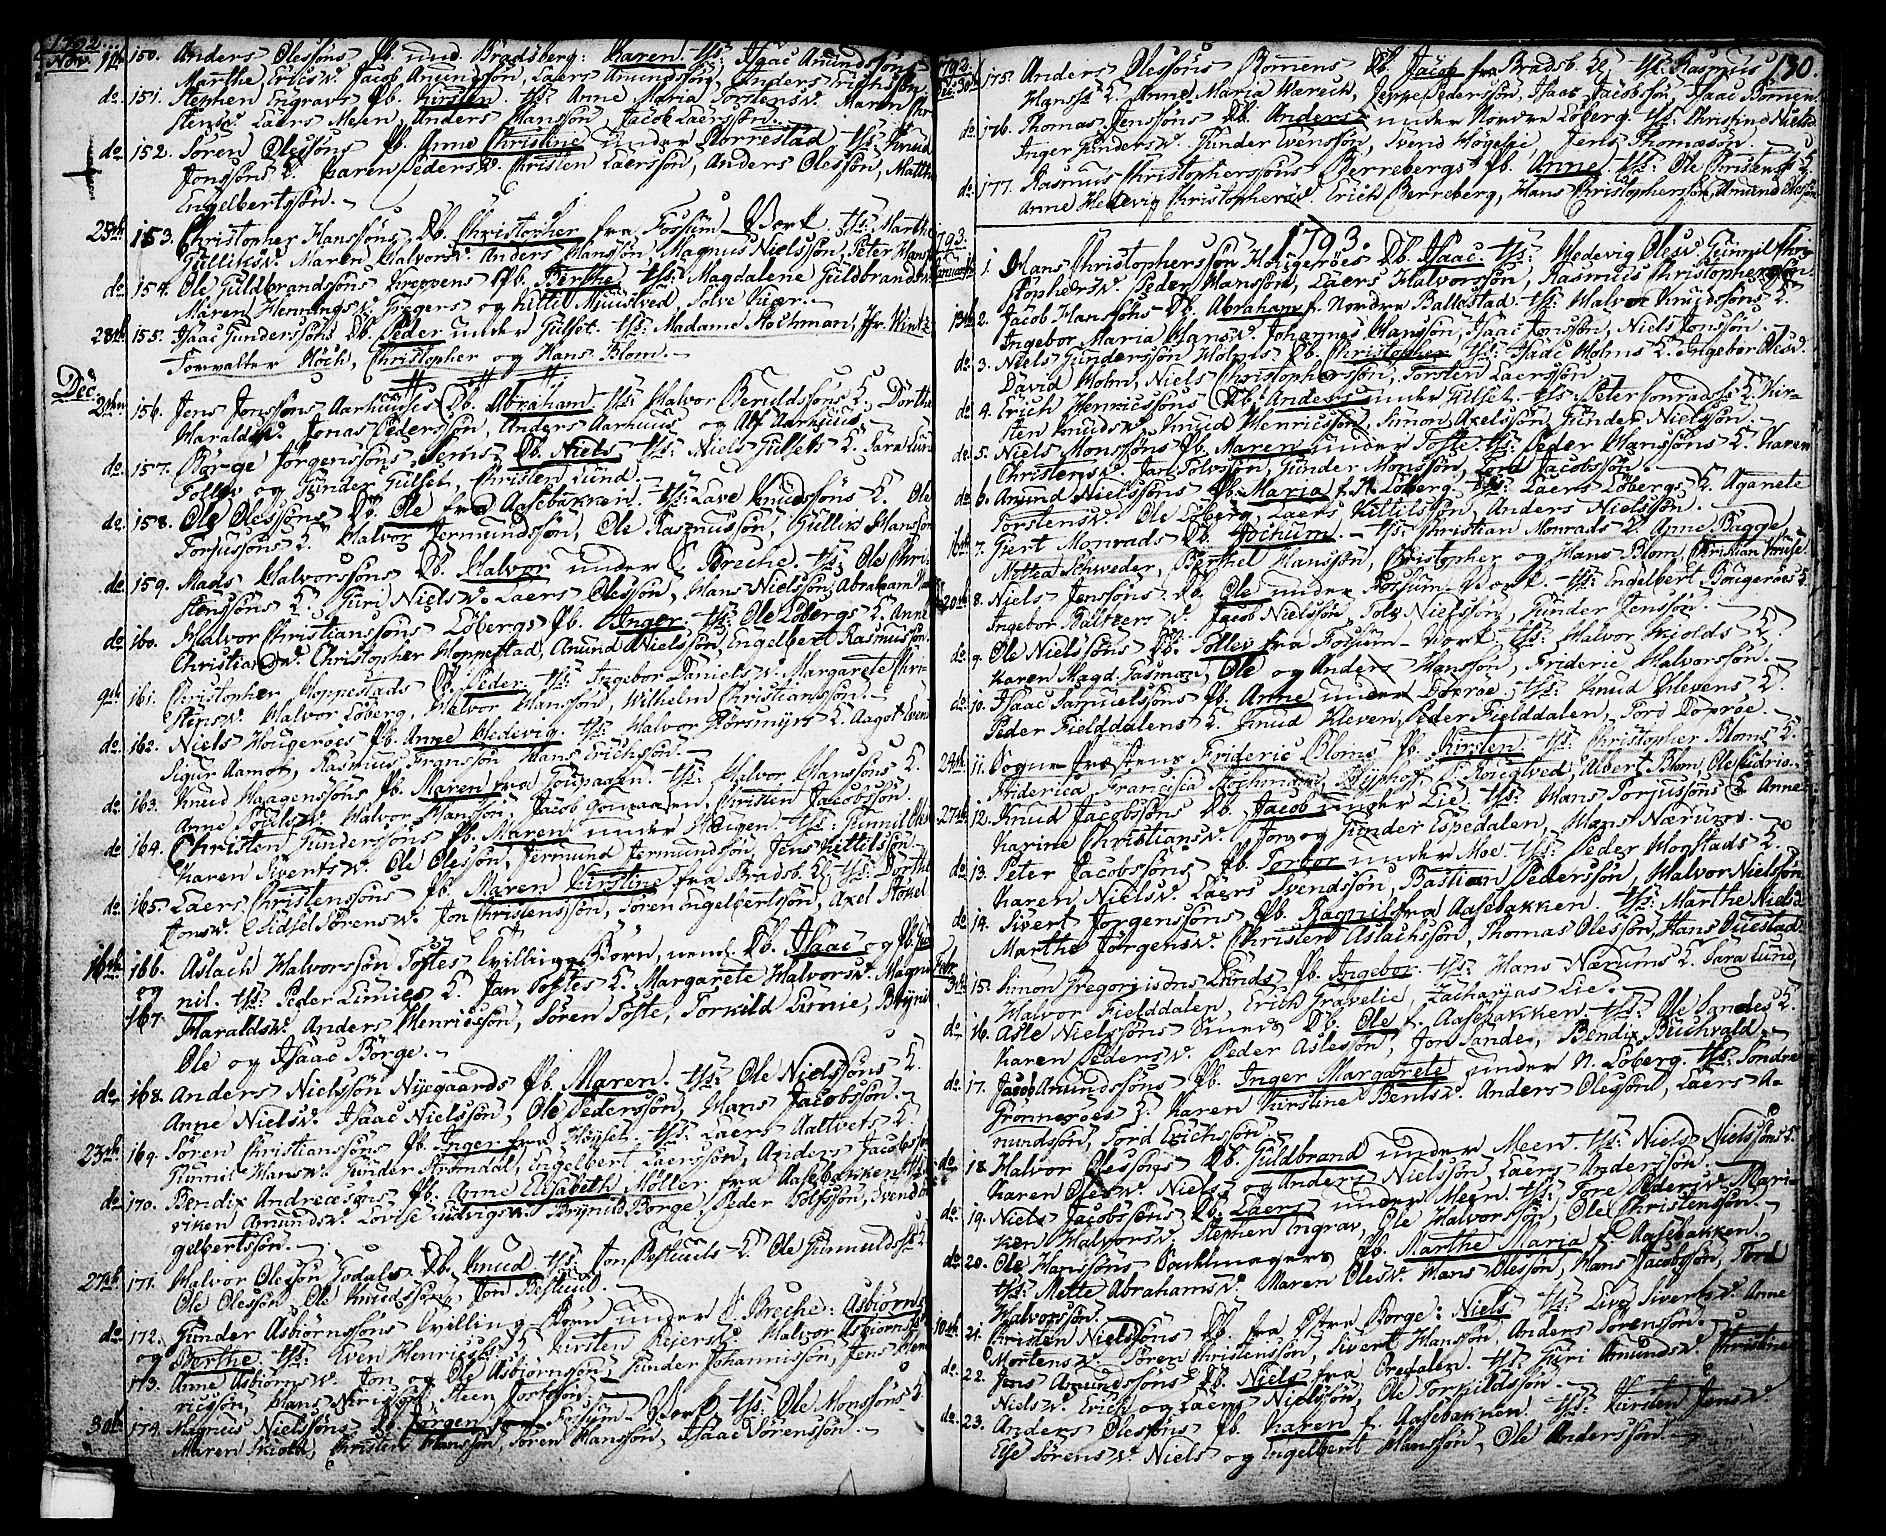 1792.
Nov. 11te 150. Anders Olessöns Pb. und. Bradsberg: Karen. tts: Isaac Amundssöns
Marthe Ericsd. Jacob Amundssön, Laers Amundssön, Anders Erichssön.
do. 151. Stephen Engravs Pb. Kirsten. tts: Anne Maria Torstensd. Maren Chr-
stensd. Laers Meen, Anders Hanssön, Jacob Laerssön.
do. 152. Sören Olessöns Pb. Anne Christine under Borrestad tts: Knud
Jonssöns K. Karen Pedersd. Christen Laerssön, Anders Olessön, Matth.
Engelbertssön.
25de 153. Christopher Hanssöns Db. Christopher fra Fossum-Verk. tts: Marthe
Gulliksd. Maren Halvorsd. Anders Hanssön, Magnus Nielssön, Peter Hanss.
do. 154. Ole Guldbrandssöns Pb. Berthe tts: Magdalene Guldbrandsd.
Maren Henningsd. og Kittel Solve
28de 155. Isaac Gunderssöns Db. Peder under Gulset. tts: Madame Stochman, Jfr. Wintz
Forvalter Höch, Christopher og Hans Blom.
Dec.
2den 156. Jens Jonssöns Aarhuuses Db. Abraham tts: Halvor K. Dorthe
Haraldsd. Jonas Pederssön, Anders Aarhuus og Alf Aarhuus.
do. 157. Börge Jörgenssöns Db. Niels tts: Niels Gulsets K. Sara Lund
Tollev og Gunder Gulset, Christen Lund.
do. 158. Ole Olessöns Db. Ole fra Aasebakken. tts: Lave Knudssöns K. Ole
Torjussöns K. Halvor Jermundssön, Ole Rasmussön, Gullik Hanssön
do. 159. Mads Halvorssöns Db. Halvor under S. Breche. tts: Ole Chri-
stenssöns K. Guri Nielsd. Laers Olessön, Hans Nielssön, Abraham
do. 160. Halvor Christianssöns Löbergs Pb. Inger. tts: Ole Löbergs K. Anne
Christiansd. Christopher Hoppestad, Amund Nielssön, Engelbert Rasmussön.
9de 161. Christopher Hoppestads Db. Peder. tts: Ingebor Danielsd. Margarete Chri-
stensd. Halvor Löberg, Halvor Hanssön, Wilhelm Christianssön.
do. 162. Niels Hougeröes Pb. Anne Hedevig. tts: Halvor K. Aagot Evensd.
Sigur Aamot, Rasmus Franssön Hans Erichssön.
do. 163. Knud Haagenssöns Pb. Maren fra tts: Halvor Hanssöns K.
Anne Halvor Hanssön, Jacob Christen Jacobssön.
do. 164. Christen Gunderssöns Pb. Maren under Haugen. tts: Gunnil
Karen Siverts d. Ole Olessön, Jermund Jermundssön, Jens Kittelssön.
do. 165. Laers Christenssöns Pb. Maren Kirstine fra Bradsb. E. tts: Dorthe
Jonsd. Sidsel Sörensd. Jon Christenssön, Sören Engelbertssön, Axel
16de 166. Aslach Halvorssön Tostes tvilling Börn, nemd. Db. Isaac og Pb. Gun-
og nil. tts: Peder Limies K. Jan Tostes K. Margarete Halvorsd.
167. Haraldsd. Anders Henricssön, Sören Toste, Torkild Limie, Brynild
Ole og Isaac Börge.
do. 168. Anders Nielssön Nijegaards Pb. Maren. tts: Ole Nielssöns K.
Anne Nielsd. Isaac Nielssön, Ole Pederssön, Hans Jacobssön.
23de 169. Sören Christianssöns Pb. Inger fra Höyset. tts: Laers Aaltvets K.
Gunnil Hansd. Gunder Strömdal, Engelbert Laerssön, Anders Jacobssön
do. 170. Bendix Andreæsöns Pb. Anne Elisabeth Möller fra Aasebakken
riken Amundsd. Lovise Ludvigsd. Brynild Börge, Peder Svend En-
gelbertssön.
27de 171. Halvor Olessön Godals Db. Knud tts: Jon K. Ole Gunnulds
Ole Olessön, Ole Knudssön, Jon
do. 172. Gunder Asbiörnssöns tvilling Börn under S. Breche: Asbiörn
og Berthe tts: Even Henricss: K. Kirsten Reiersd. Halvor Asbiörnss:
173. Anne Asbiörnsd. Jon og Ole Asbiörnssön, Gunder Johannissön, Jens Hen-
ricssön, Hans Steen
30de 174. Magnus Nielssöns Db. Jörgen fra Fossum-Verk tts: Ole Monssöns K.
Maren Christen Hanssön, Sören Hanssön, Isaac Sörenssön.
130.
1792.
Dec. 30de 175. Anders Olessöns Bomens Db. Jacob fra Bradsb. E. tts: Rasmus
Hanss: K. Anne Maria Jeppe Pederssön, Isaac Jacobssön, Isaac Bomen.
do. 176. Thomas Jenssöns Db. Anders under Nordre Löberg. tts: Christine Nielsd.
Inger Gundersd. Gunder Evenssön, Svend Jens Thomæsön.
do. 177. Rasmus Christopherssöns Berrebergs Pb. Anne. tts: Ole Christenss: K.
Anne Hedevig Christophersd. Erich Berreberg, Hans Christopherssön, Amund Olessön
1793.
1793.
Januar 1. Hans Christopherssön Hougeröes Db. Isaac tts: Hedevig Olesd. Gunnil Chri-
stophersd. Peder Hanssön, Laers Halvorssön, Rasmus Christopherssön.
13de 2. Jacob Hanssöns Db. Abraham f. Nordre Ballestad. tts: Halvor Knudssöns K.
Ingebor Maria Hansd. Johannes Hanssön, Isaac Jonssön, Niels Jonssön.
do. 3. Niels Gunderssön Holms Db. Christopher tts: Isaac Holms K. Ingebor Olesd.
David Holm, Niels Christopherssön, Torsten Laerssön.
do. 4. Erich Henricssöns Db. Anders under Gulset. tts: Peter Conrads: K. Kir-
sten Knudsd. Knud Henricssön, Simon Axelssön, Gunder Nielssön.
do. 5. Niels Monssöns Pb. Maren under Toste. tts: Peder Hanssöns K. Karen
Christensd. Jan Tolvssön, Gunder Monssön, Tord Jacobssön.
do. 6. Amund Nielssöns Pb. Maria f. N. Löberg. tts: Laers Löbergs K. Aganete
Torstensd. Ole Löberg, Laers Kittilssön, Anders Nielssön.
16de 7. Gert Monrads Db. Jochum. tts: Christian Monrads K. Anne Bagge,
Mettea Schweder, Berthel Hanssön, Christopher og Hans Blom, Christian Kruse.
20de 8. Niels Jenssöns Db. Ole under Fossum Verk. tts: Engelbert Bougeröes K.
Ingebor Baltzers d. Jacob Nielssön, Tolv Nielssön, Gunder Jenssön.
do. 9. Ole Nielssöns Db. Tollev fra Fossum-Verk tts: Halvor Skiolds K.
Karen Magd. Gasman, Ole og Anders Hanssön, Frideric Halvorssön.
do. 10. Isaac Samuelssöns Pb. Anne under Doxröe. tts: Knud Klevens K.
Peder Fielddalens K. Knud Kleven, Peder Fielddalen, Tord Doxröe.
24de 11. Sogne Præstens Frideric Bloms Pb. Kirsten. tts: Christopher Bloms K.
Friderica Francisca Stochman, Bijshof, f. Rougtved, Albert Blom, Ole
27de 12. Knud Jacobssöns Db. Jacob under Lie tts: Hans Torjussöns K. Anne
Karine Christiansd. Jon og Gunder Espedalen, Hans Nærum.
do. 13. Peter Jacobssöns Pb. Torbor under Moe. tts: Peder Hogstads K.
Karen Nielsd. Laers Svendssön, Bastian Pederssön, Halvor Nielssön
do. 14. Sivert Jörgenssöns Pb. Ragnil fra Aasebakken. tts: Marthe Nielsd.
Marthe Jörgensd. Christen Aslachssön, Thomas Olessön, Hans Ouestad.
Febr.
3de 15. Simon Gregorijssöns Lunde Pb. Ingebor. tts: Hans Nærums K. Sara Lund,
Halvor Fielddalen, Erich Gravelie, Zacharjas Lie.
do. 16. Asle Nielssöns Db. Ole f. Aasebakken. tts: Ole Sandes K.
Karen Pedersd. Peder Aslessön, Jon Sande, Bendix Buchvald.
do. 17. Jacob Amundssöns Pb. Inger Margarete under N. Löberg. tts: Söndre
Grönneröes K. Karen Kirstine Bentsd. Anders Olessön, Laers A-
mundssön, Tord Erichssön.
do. 18. Halvor Olessöns Db. Guldbrand under Meen. tts: Niels Nielssöns K.
Karen Olesd. Niels og Anders Nielssön, Laers Anderssön.
do. 19. Niels Jacobssöns Db. Laers under Meen. tts: Tore Pedersd. Mari-
ken Halvorsd. Stephen Engrav, Ole Halvorssön, Ole Christenssön.
do. 20. Ole Hanssöns Pb. Marthe Maria f. Aasebakken.
tts: Mette Abrahamsd. Maren Olesd. Hans Olessön, Hans Jacobssön, Tord
Halvorssön.
10de 21. Christen Nielssöns Db. fra Östre Borge: Niels tts: Live Sivertsd. Anne
Mortensd. Sören Christenssön, Sivert Hanssön, Anders Sörenssön.
do. 22. Jens Amundssöns Db. Niels fra Bredalen. tts: Guri Amundsd. Christine
Nielsd. Erich og Laers Nielssön, Ole Torkildssön.
do. 23. Anders Olessöns Pb. Karen f. Aasebakken tts: Kirsten Jensd.
Else Sörensd. Niels og Engelbert Hanssön, Ole Anderssön.